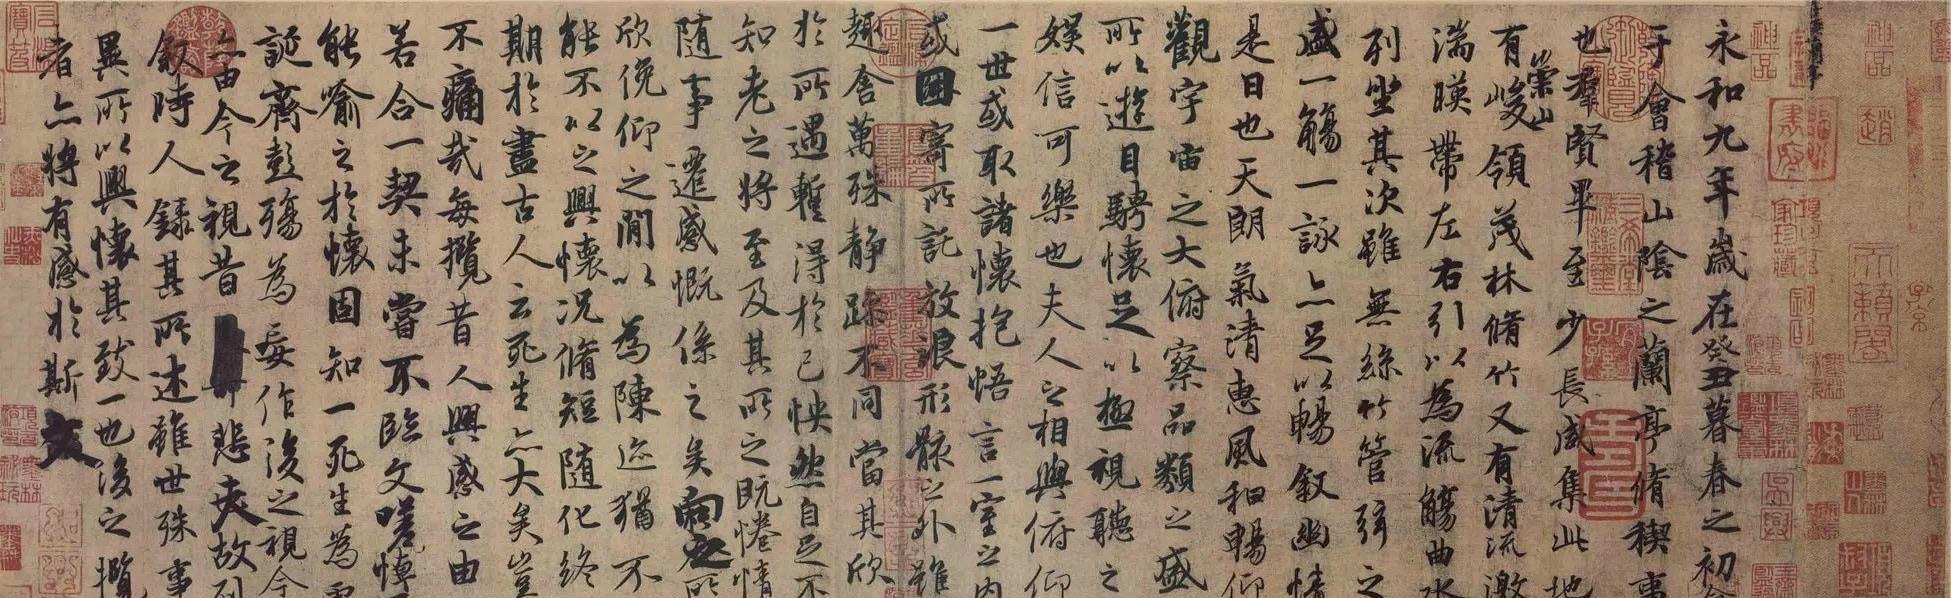 永和九年歲在癸丑暮春之初
于會稽山陰之蘭亭脩禊事
也羣賢畢至少長咸集此地
有崇山峻領茂林脩竹又有清流激
湍暎帶左右引以為流觴曲水
列坐其次雖無絲竹管弦之
盛一觴一詠亦足以暢敘幽情
是日也天朗氣清惠風和暢仰
觀宇宙之大俯察品類之盛
所以遊目騁懷足以極視聽之
娛信可樂也夫人之相與俯仰
一世或取諸懷抱悟言一室之內
或因寄所託放浪形骸之外雖
趣舍萬殊靜躁不同當其欣
於所遇暫得於己怏然自足不
知老之將至及其所之既惓情
隨事遷感慨係之矣向之所
欣俛仰之閒以為陳迹猶不
能不以之興懷況脩短隨化終
期於盡古人云死生亦大矣豈
不痛哉每攬昔人興感之由
若合一契未嘗不臨文嗟悼
能喻之於懷固知一死生為
誕齊彭殤為妄作後之視今
亦由今之視昔悲夫故列
敘時人錄其所述雖世殊事
異所以興懷其致一也後之攬
者亦將有感於斯文